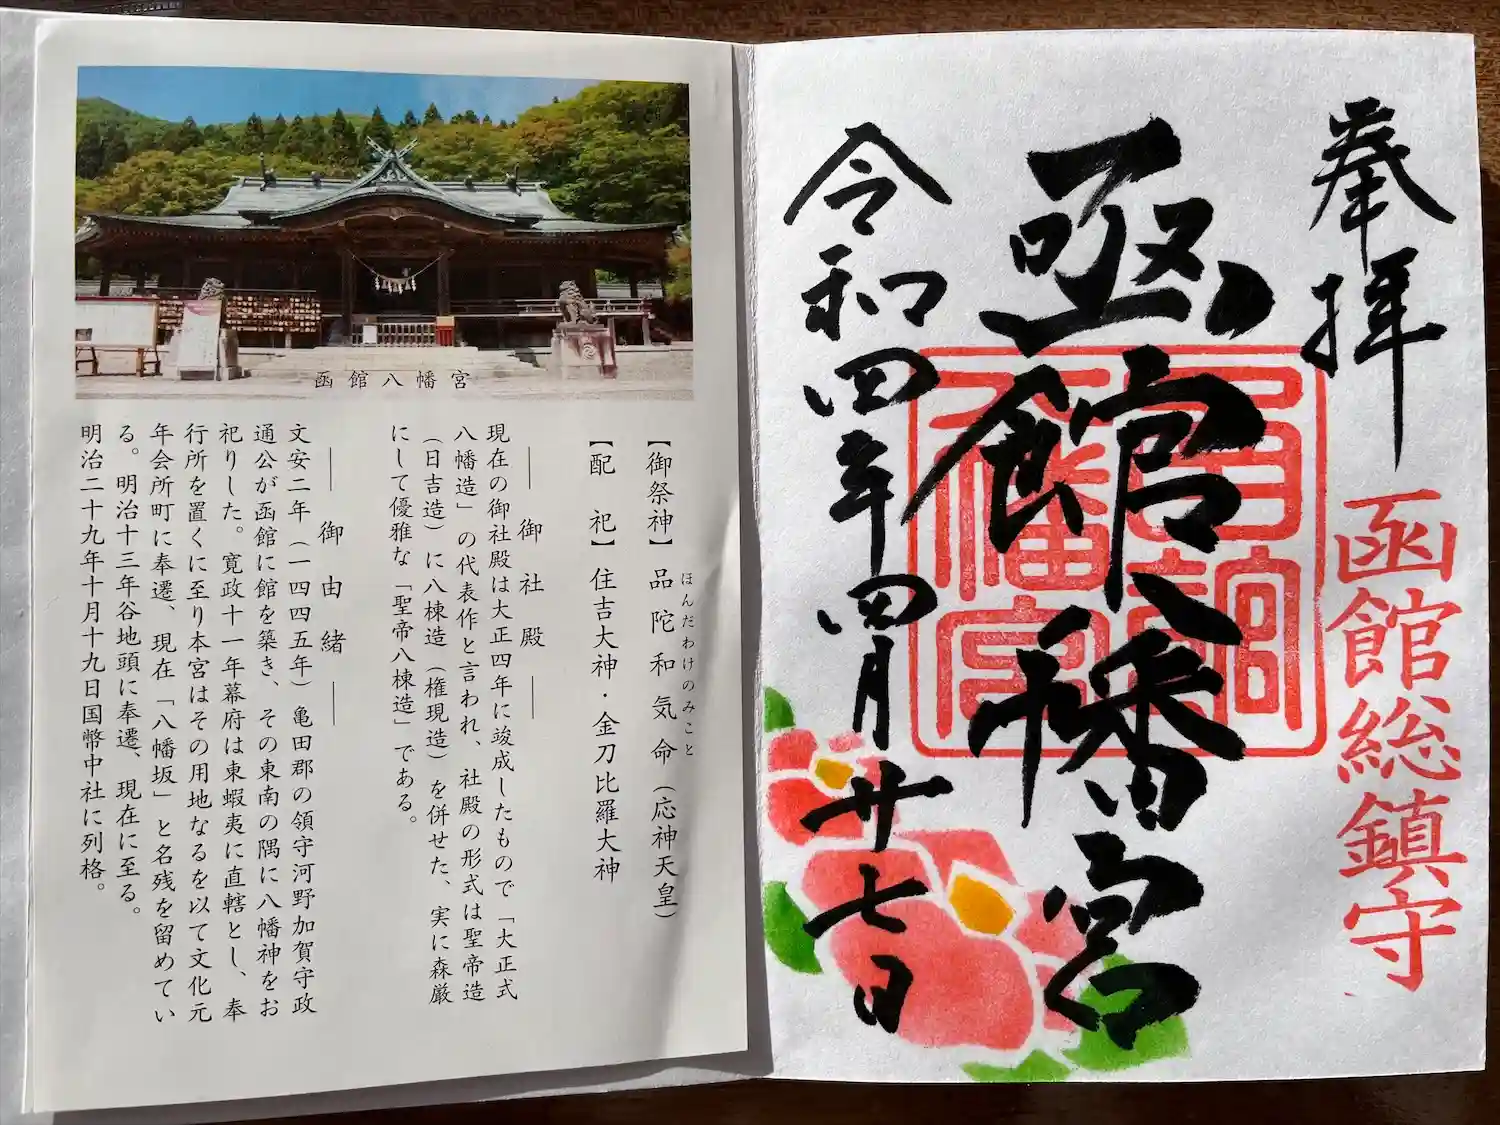 函館八幡宮
【御祭神】品陀和気命（応神天皇）
ほんだわけのみこと
【配　祀】住吉大神・金刀比羅大神
――御社殿――
現在の御社殿は大正四年に竣成したもので「大正式
八幡造」の代表作と言われ、社殿の形式は聖帝造
（日吉造）に八棟造（権現造）を併せた、実に森厳
にして優雅な「聖帝八棟造」である。
――御由緒――
文安二年（一四四五年）亀田郡の領守河野加賀守政
通公が函館に館を築き、その東南の隅に八幡神をお
祀りした。寛政十一年幕府は東蝦夷に直轄とし、奉
行所を置くに至り本宮はその用地なるを以て文化元
年会所町に奉遷、現在「八幡坂」と名残を留めてい
る。明治十三年谷地頭に奉遷、現在に至る。
明治二十九年十月十九日国幣中社に列格。
奉拝
函館総鎮守
函館八幡宮
函館八幡宮
令和四年四月廿七日